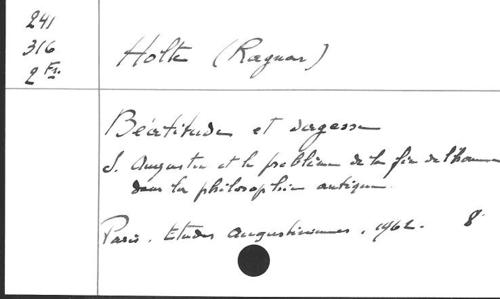 241
316
2 Fs.
Holte (Ragnar)
Béatitude et sagesse
S. Augustin et le problème de la fin de l'homme
dans la philosophie antique.
Paris. Etudes augustiniennes, 1962. 8°